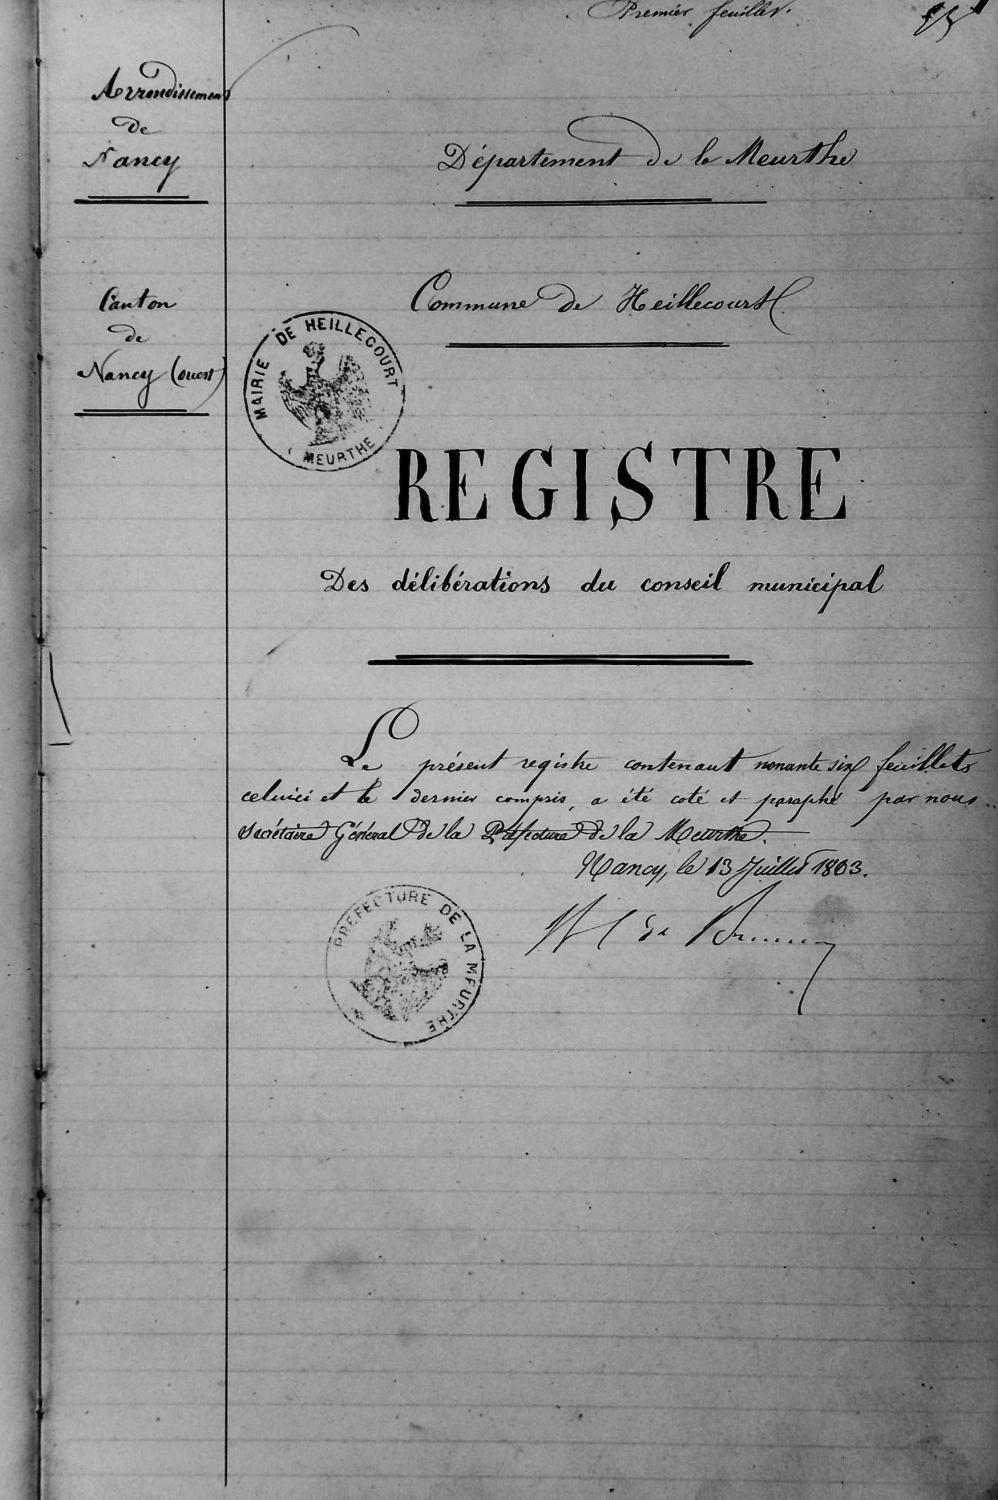 Premier feuillet.
Arrondissement
de
Nancy
Département de la Meurthe
Canton
de
Nancy (ouest)
Commune de Heillecourt
MAIRIE DE HEILLECOURT
(MEURTHE)
REGISTRE
Des délibérations du conseil municipal
Le présent registre contenant nonante six feuillets
celuici et le dernier compris, a été coté et paraphé par nous
Secrétaire Général de la Préfecture de la Meurthe.
Nancy, le 13 Juillet 1863.
PRÉFECTURE DE LA MEURTHE